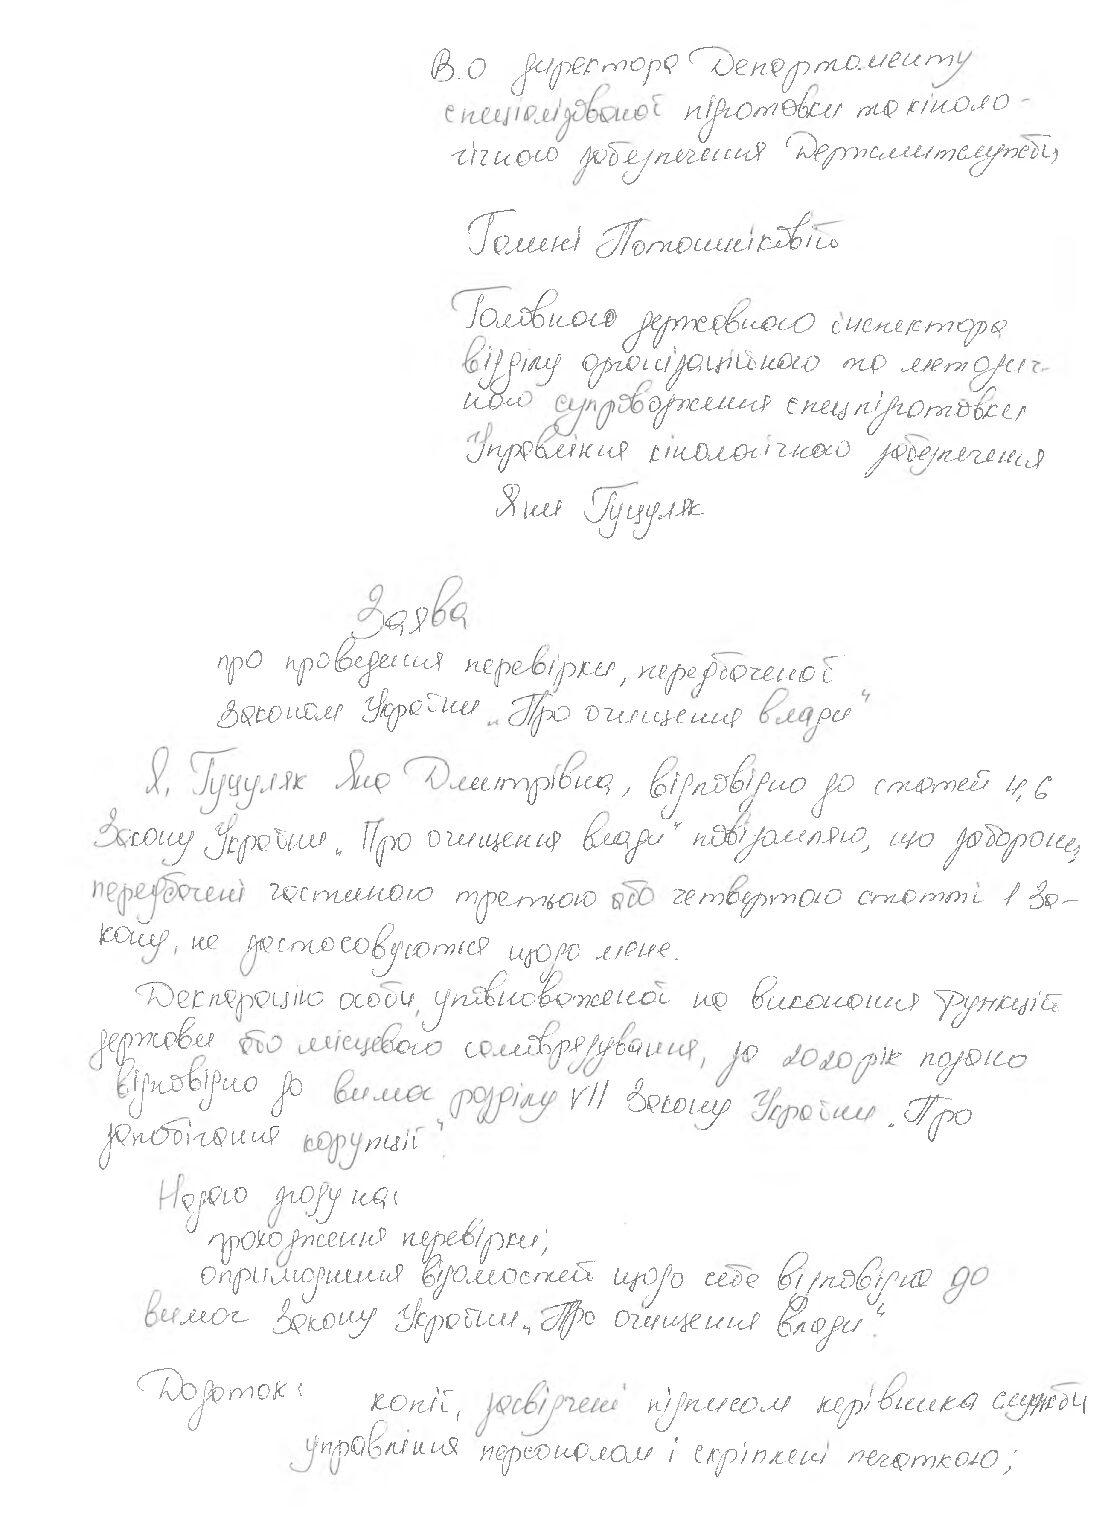 В.о директора Департаменту
спеціалізованої підготовки та кіноло-
гічного забезпечення Держмитслужби
Галині Поташніковій
Головного державного інспектора
відділу організаційного та методич-
ного супроводження спецпідготовки
Управління кінологічного забезпечення
Яни Гуцуляк
Заява
про проведення перевірки, передбаченої
Законом України „Про очищення влади"
Я, Гуцуляк Яна Дмитрівна, відповідно до статей 4, 6
Закону України „Про очищення влади" повідомляю, що заборони,
передбачені частиною третьою або четвертою статті 1 За-
кону, не застосовуються щодо мене.
Декларацію особи, уповноваженої на виконання функцій
держави або місцевого самоврядування, за 2020 рік подано
відповідно до вимог розділу VII Закону України „Про
запобігання корупції".
Надаю згоду на:
проходження перевірки;
оприлюднення відомостей щодо себе відповідно до
вимог Закону України „Про очищення влади".
Додаток: копії, засвідчені підписом керівника служби
управління персоналом і скріплені печаткою;